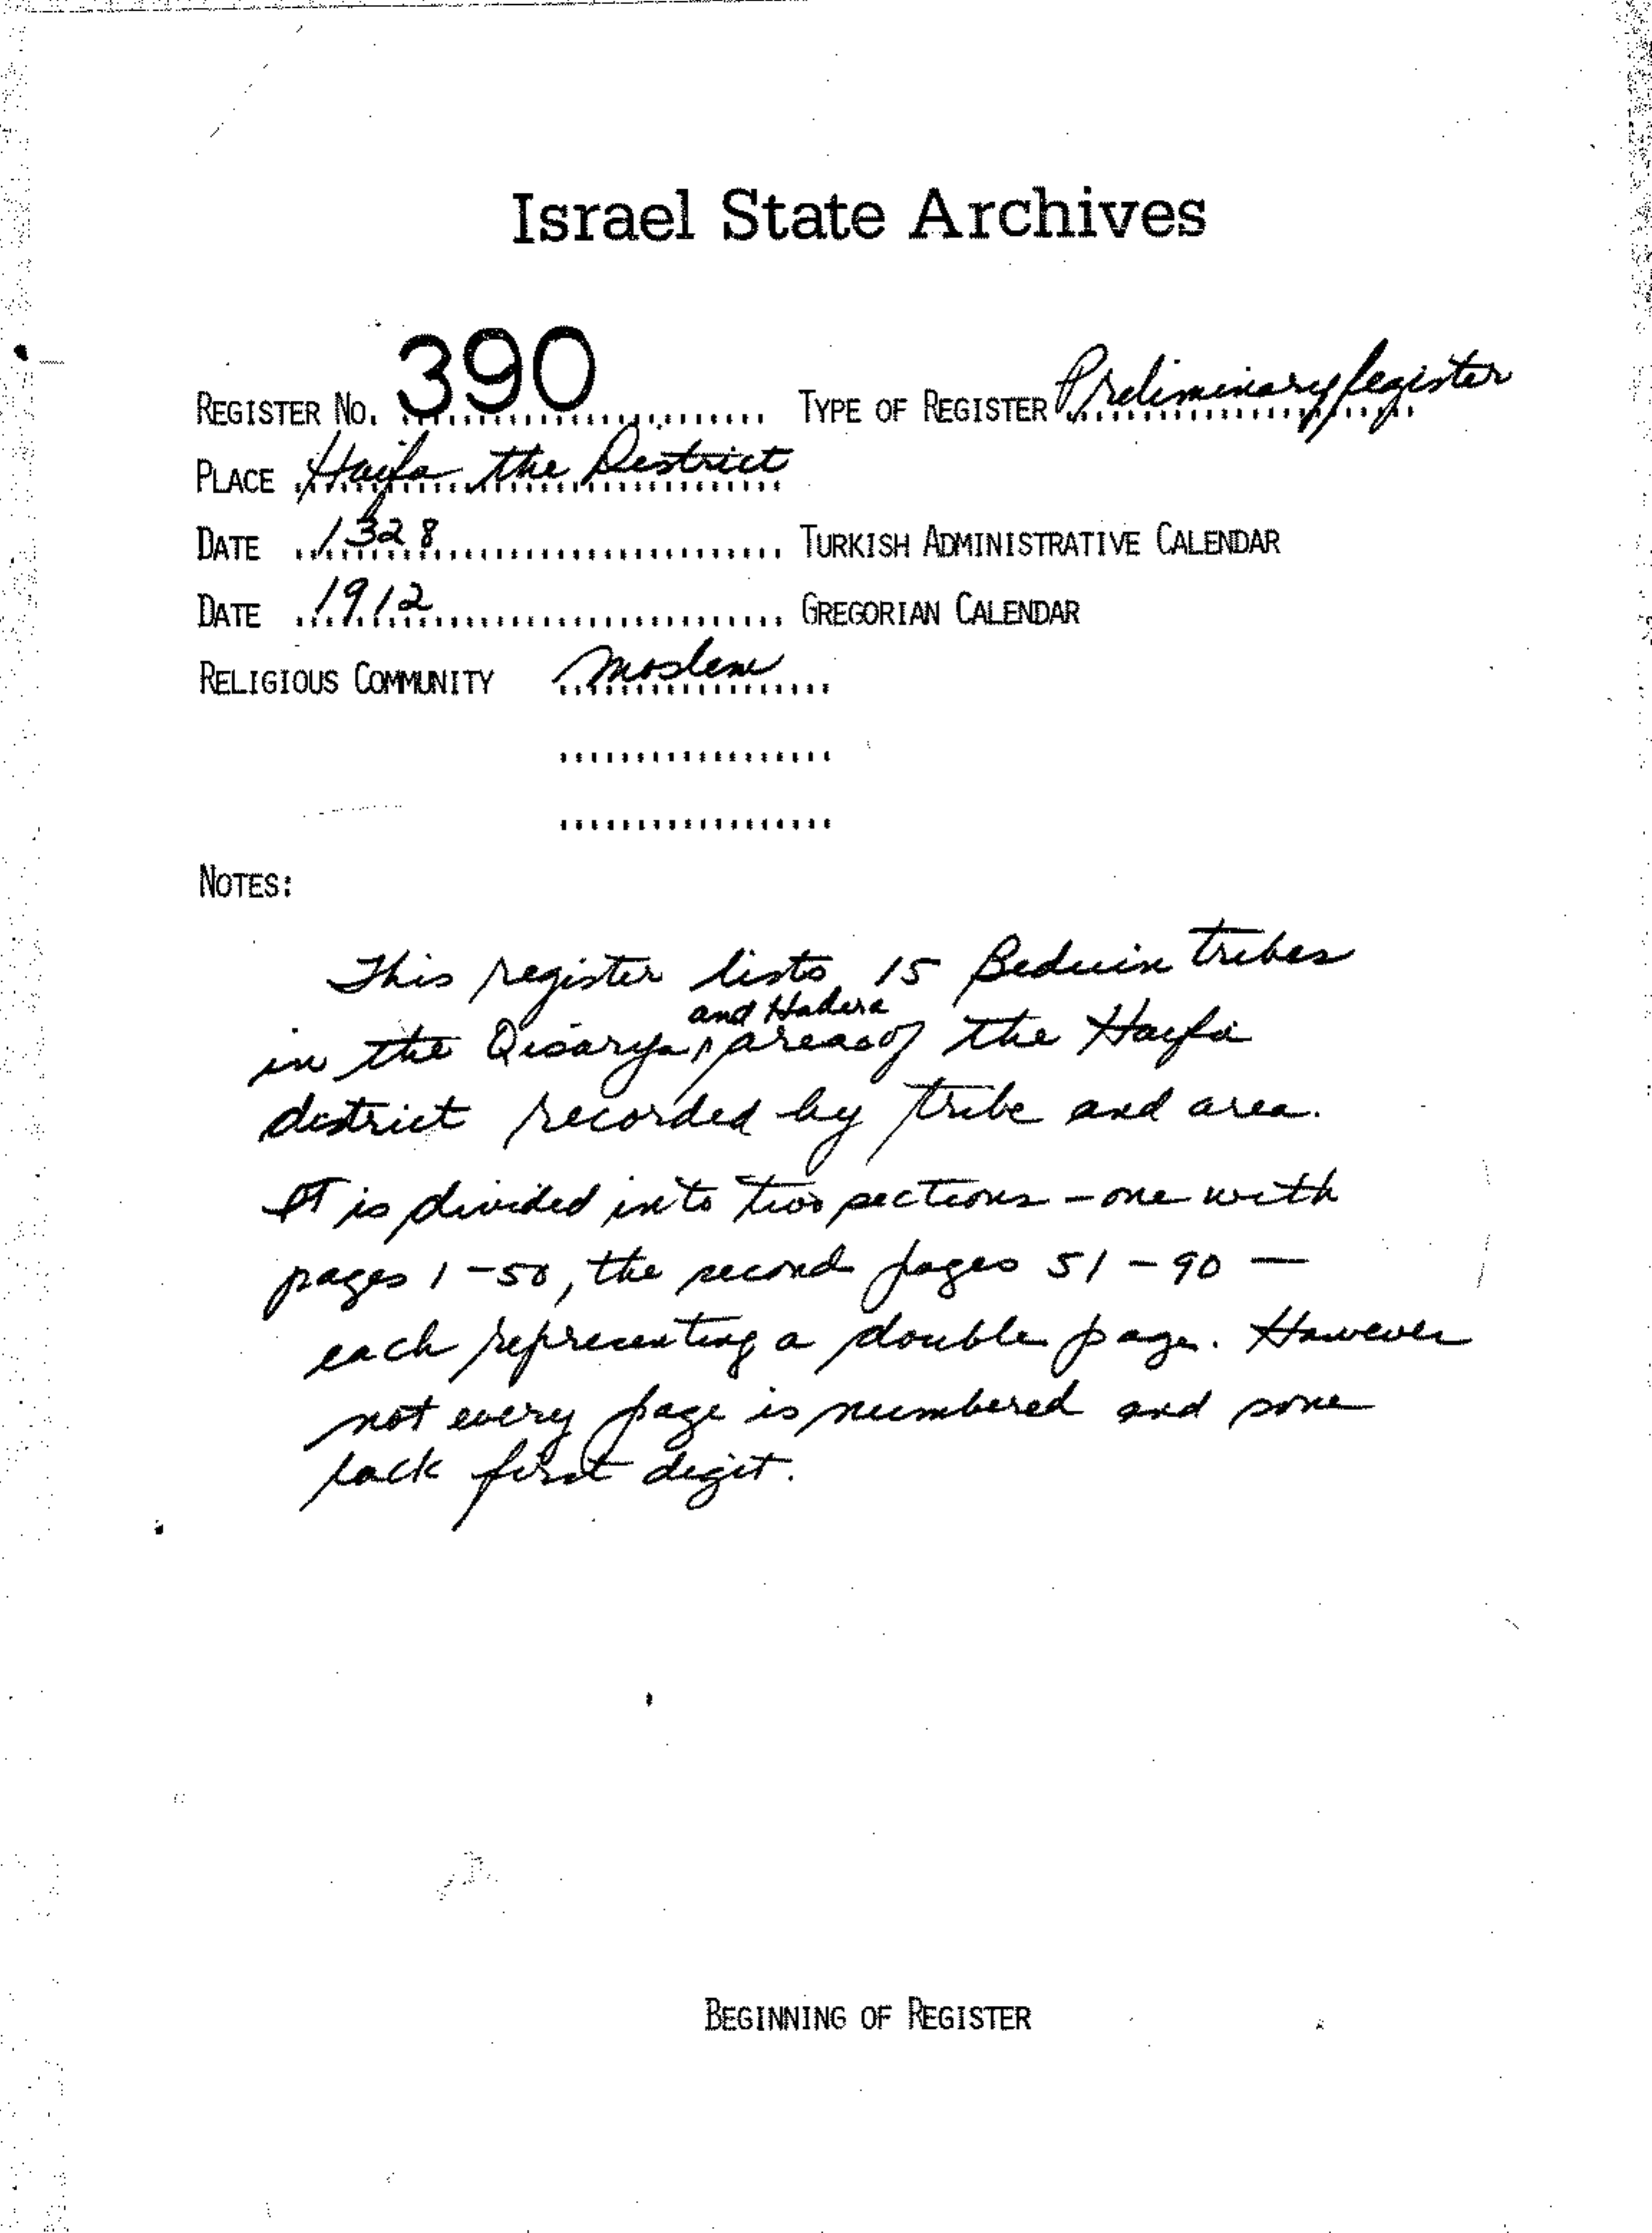 Israel State Archives
REGISTER NO. 390 TYPE OF REGISTER Preliminary Register
PLACE Haifa the District
DATE 1328 TURKISH ADMINISTRATIVE CALENDAR
DATE 1912 GREGORIAN CALENDAR
RELIGIOUS COMMUNITY Moslem
NOTES:
This register lists 15 Beduin tribes
and Hadera
in the Qisarya, areas of the Haifa
district recorded by tribe and area.
It is divided into two sections - one with
pages 1-50, the second pages 51-90 —
each representing a double page. However
not every page is numbered and some
lack first digit.
BEGINNING OF REGISTER